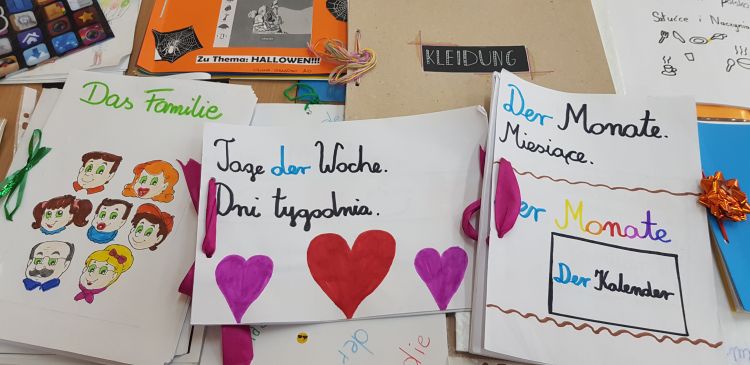 Zu Thema: HALLOWEEN!!!
KLEIDUNG
Sztućce i Naczynia
Das Familie
Tage der Woche.
Dni tygodnia.
Der Monate.
Miesiące.
Der Monate
Der Kalender
der
die